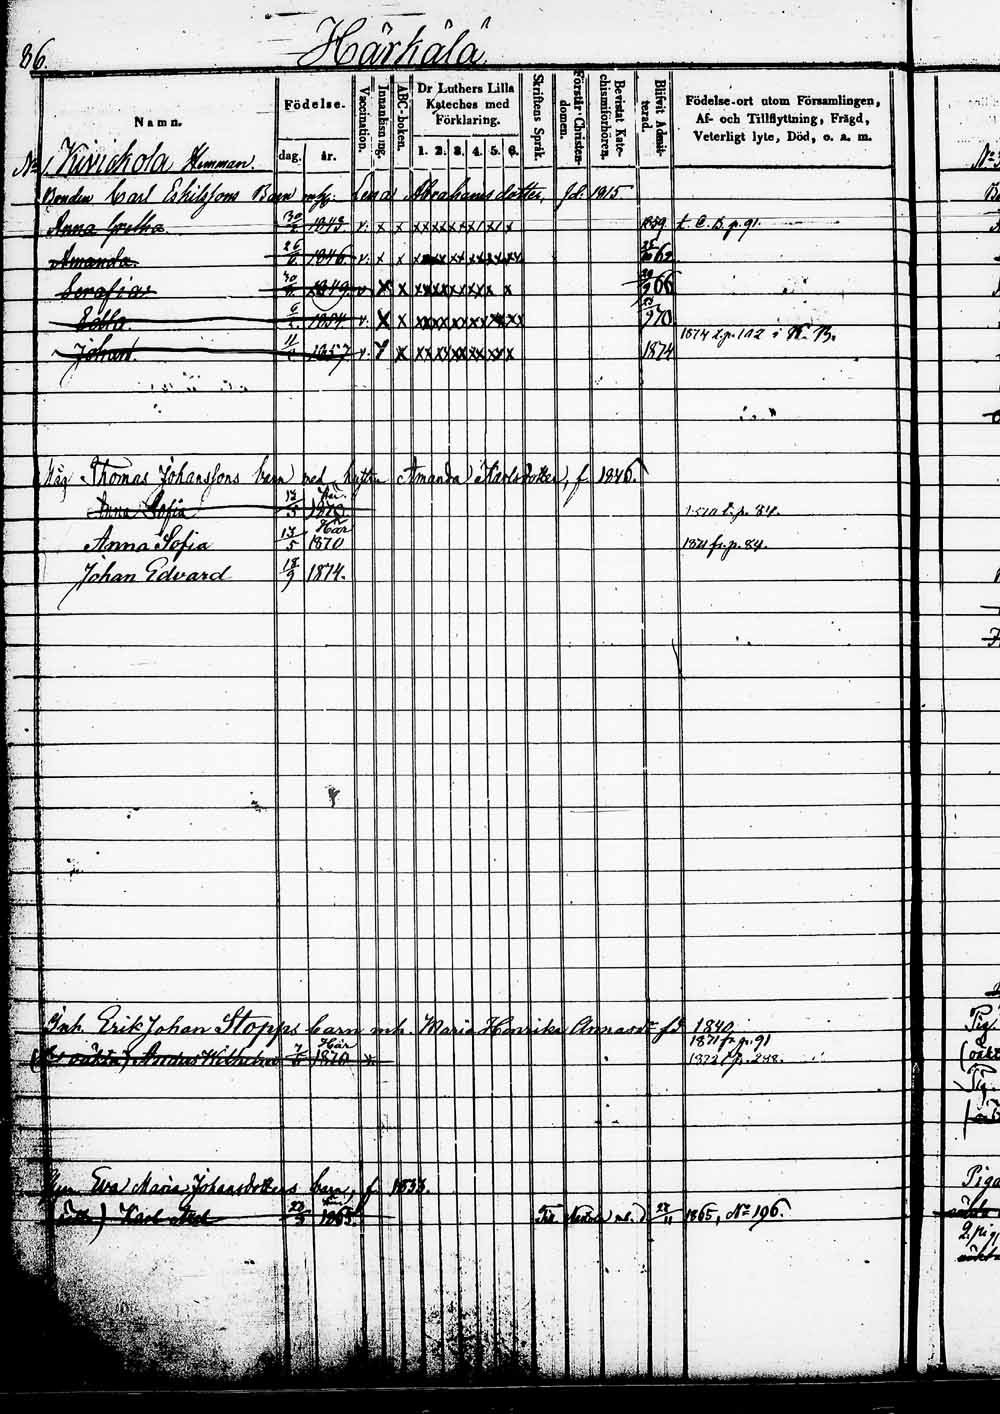 86.
Härkälä
Namn.
Födelse.
dag.
år.
Vaccination.
Innanläsning.
ABC-boken.
Dr Luthers Lilla Kateches med Förklaring.
1. 2. 3. 4. 5. 6.
Skriftens Språk.
Förstår Christendomen.
Bevistat Katechismiförhören.
Blifvit Admitterad.
Födelse-ort utom Församlingen, Af- och Tillflyttning, Frägd, Veterligt lyte, Död, o. a. m.
No 1 Hemman.
Bonden Carl Eskilssons Barn Lena Abrahamsdotter, fd. 1815.
Anna Gretha 1843 v. x x 1859 t. C. B. p. 91.
Amanda 1846 v. x x 62
Serafia 1849 v x x 66
1854 v. x x 70
1874 t. p. 112 i K. B.
Johan 11 1857 v. x 1874
Måg Thomas Johanssons barn med hustru Amanda Karlsdotter, f 1846.
Anna Sofia 13/5 Här 1870 t. p. 84.
Anna Sofia 13/5 Här 1870 1871 fr. p. 84.
Johan Edvard 18/9 1874.
Inh. Erik Johan Stopps barn mh. Maria Henrika Annasdr fd 1840
1871 fr. p. 91
(oäkta) Wilhelm 7 Här 1870 1872 t. p. 248.
Eva Maria Johansdotters barn, f 1833.
Karl 1865. 28/11 1865, No 196.